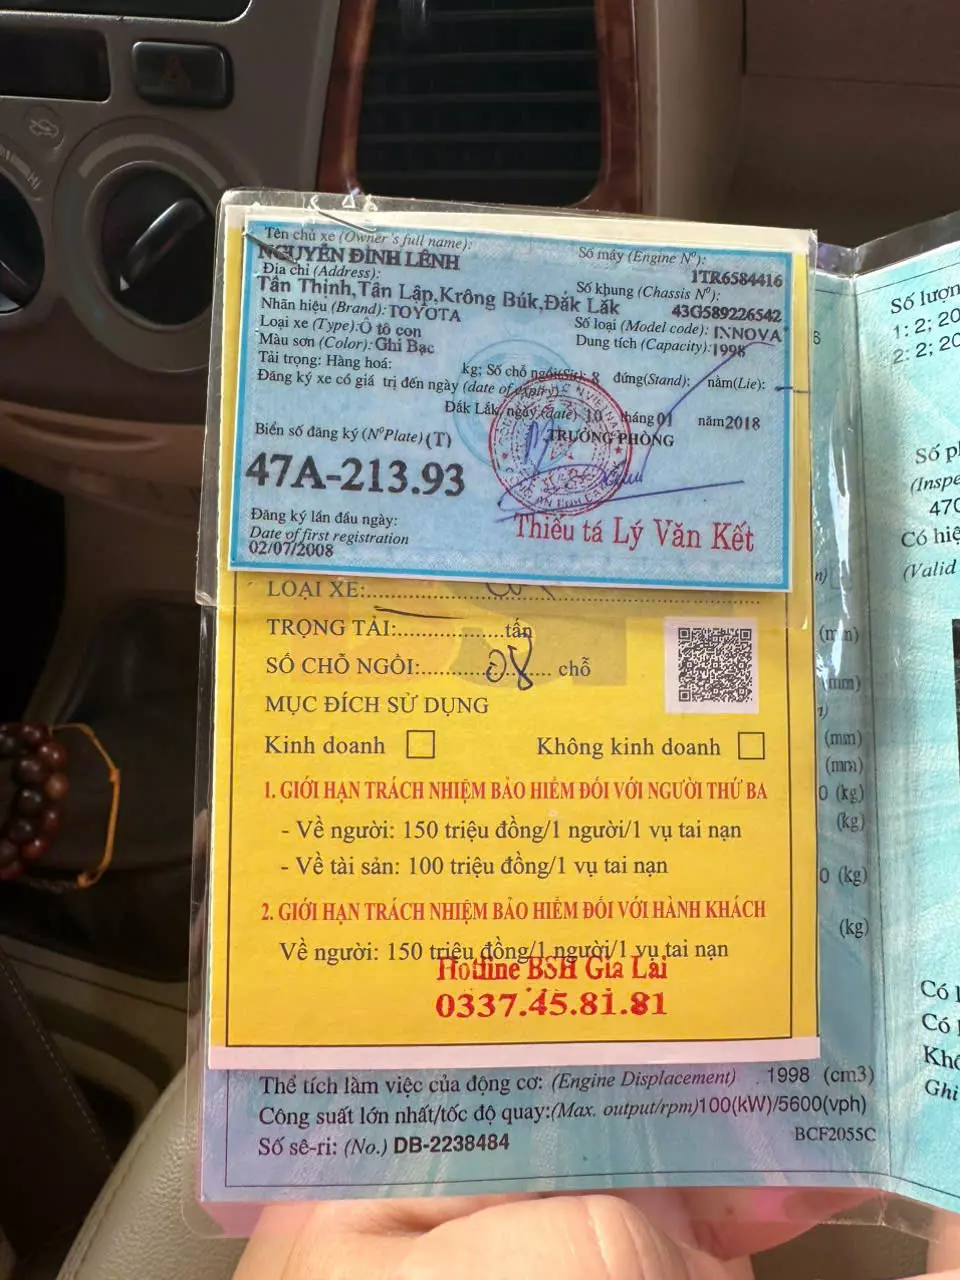 HI
Tên chủ xe (Owner's full name):
NGUYỄN ĐÌNH LÊNH
Số máy (Engine Nº):
1TR6584416
Địa chỉ (Address):
Tân Thịnh,Tân Lập,Krông Búk,Đắk Lắk
Số khung (Chassis Nº):
43G589226542
Nhãn hiệu (Brand): TOYOTA
Số loại (Model code): INNOVA
Loại xe (Type): Ô tô con
Dung tích (Capacity): 1998
Màu sơn (Color): Ghi Bạc
Tải trọng: Hàng hoá: kg; Số chỗ ngồi(Sit): 8 đứng(Stand): nằm(Lie):
Đăng ký xe có giá trị đến ngày (date of expiry)
Đắk Lắk, ngày (date) 10 tháng 01 năm 2018
Biển số đăng ký (NºPlate) (T)
TRƯỞNG PHÒNG
47A-213.93
Đăng ký lần đầu ngày:
Date of first registration
02/07/2008
Thiếu tá Lý Văn Kết
LOẠI XE:
TRỌNG TẢI:..................tấn
SỐ CHỖ NGỒI:...........08.... chỗ
MỤC ĐÍCH SỬ DỤNG
Kinh doanh Không kinh doanh
1. GIỚI HẠN TRÁCH NHIỆM BẢO HIỂM ĐỐI VỚI NGƯỜI THỨ BA
- Về người: 150 triệu đồng/1 người/1 vụ tai nạn
- Về tài sản: 100 triệu đồng/1 vụ tai nạn
2. GIỚI HẠN TRÁCH NHIỆM BẢO HIỂM ĐỐI VỚI HÀNH KHÁCH
Về người: 150 triệu đồng/1 người/1 vụ tai nạn
Hotline BSH Gia Lai
0337.45.81.81
Thể tích làm việc của động cơ: (Engine Displacement) 1998 (cm3)
Công suất lớn nhất/tốc độ quay:(Max. output/rpm)100(kW)/5600(vph)
Số sê-ri: (No.) DB-2238484
BCF2055C
(mm)
(mm)
(mm)
(mm)
0 (kg)
(kg)
0 (kg)
(kg)
Số lượn
1: 2; 20
2: 2; 20
Số p
(Inspe
470
Có hiệ
(Valid
Có
Có
Khô
Ghi